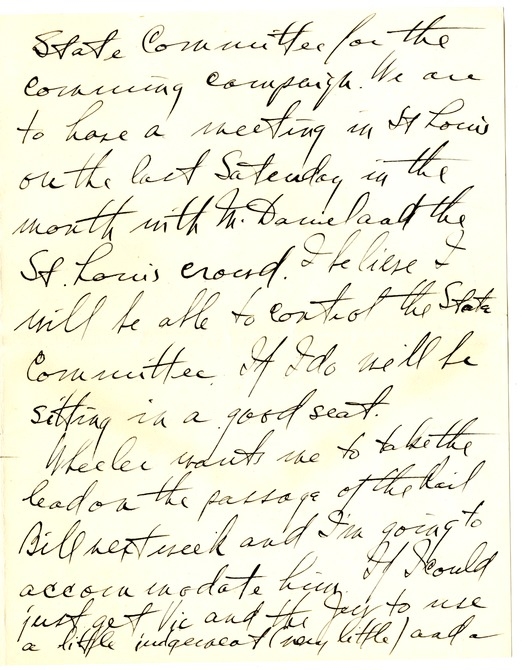 State Committee for the
comming campaign. We are
to have a meeting in St Louis
on the last Saturday in the
month with McDaniel and the
St. Louis crowd. I believe I
will be able to control the State
Committee. If I do will be
sitting in a good seat.
Wheeler wants me to take the
lead on the passage of the Rail
Bill next week and I'm going to
accommodate him. If I could
just get Vic and the Jury to use
a little judgement (very little) and a